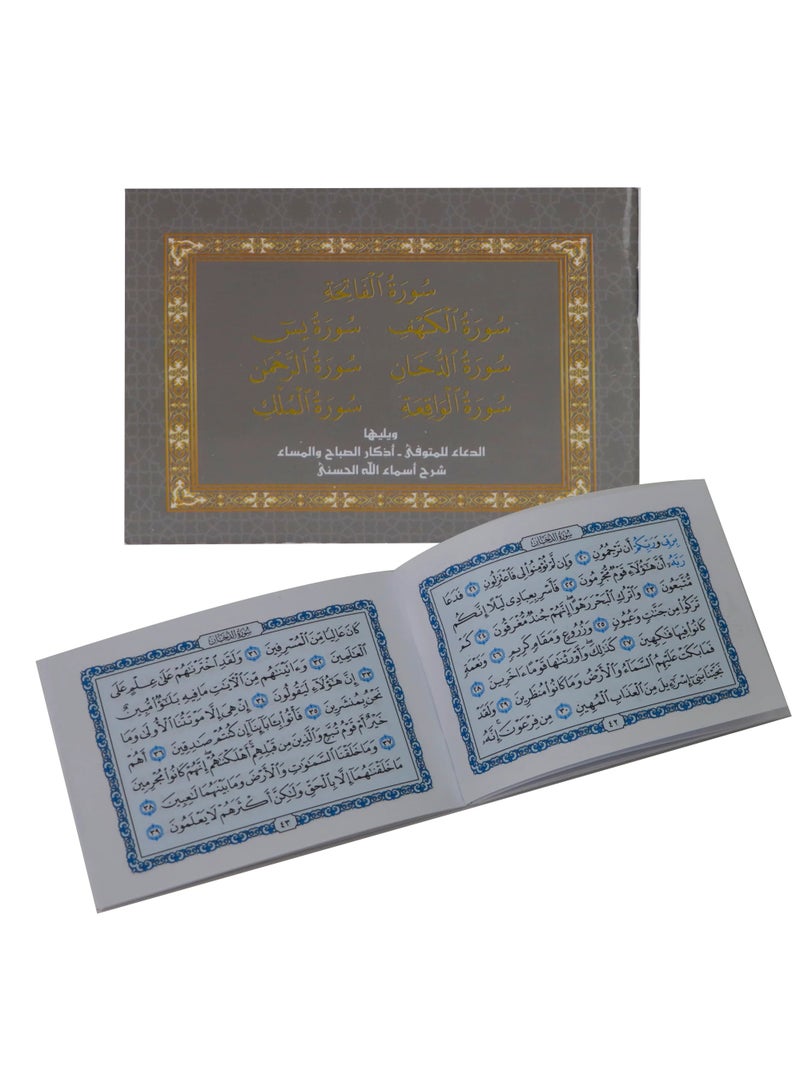 سُورَةُ الْفَاتِحَةِ
سُورَةُ الْكَهْفِ سُورَةُ يسٓ
سُورَةُ الدُّخَانِ سُورَةُ الرَّحْمَٰن
سُورَةُ الْوَاقِعَةِ سُورَةُ الْمُلْكِ
ويليها
الدعاء للمتوفى - أذكار الصباح والمساء
شرح أسماء الله الحسنى
سُورَةُ الدُّخَانِ
بِرَبِّي وَرَبِّكُمْ أَن تَرْجُمُونِ ٢٠ وَإِن لَّمْ تُؤْمِنُوا۟ لِي فَاعْتَزِلُونِ ٢١ فَدَعَا
رَبَّهُۥٓ أَنَّ هَٰٓؤُلَآءِ قَوْمٌ مُّجْرِمُونَ ٢٢ فَأَسْرِ بِعِبَادِى لَيْلًا إِنَّكُم
مُّتَّبَعُونَ ٢٣ وَاتْرُكِ الْبَحْرَ رَهْوًا إِنَّهُمْ جُندٌ مُّغْرَقُونَ ٢٤ كَمْ
تَرَكُوا۟ مِن جَنَّٰتٍ وَعُيُونٍ ٢٥ وَزُرُوعٍ وَمَقَامٍ كَرِيمٍ ٢٦ وَنَعْمَةٍ
كَانُوا۟ فِيهَا فَٰكِهِينَ ٢٧ كَذَٰلِكَ وَأَوْرَثْنَٰهَا قَوْمًا ءَاخَرِينَ ٢٨
فَمَا بَكَتْ عَلَيْهِمُ السَّمَآءُ وَالْأَرْضُ وَمَا كَانُوا۟ مُنظَرِينَ ٢٩ وَلَقَدْ
نَجَّيْنَا بَنِىٓ إِسْرَٰٓءِيلَ مِنَ الْعَذَابِ الْمُهِينِ ٣٠ مِن فِرْعَوْنَ إِنَّهُۥ
٤٢
سُورَةُ الدُّخَانِ
كَانَ عَالِيًا مِّنَ الْمُسْرِفِينَ ٣١ وَلَقَدِ اخْتَرْنَٰهُمْ عَلَىٰ عِلْمٍ عَلَى
الْعَٰلَمِينَ ٣٢ وَءَاتَيْنَٰهُم مِّنَ الْءَايَٰتِ مَا فِيهِ بَلَٰٓؤٌا۟ مُّبِينٌ
٣٣ إِنَّ هَٰٓؤُلَآءِ لَيَقُولُونَ ٣٤ إِنْ هِىَ إِلَّا مَوْتَتُنَا الْأُولَىٰ وَمَا
نَحْنُ بِمُنشَرِينَ ٣٥ فَأْتُوا۟ بِـَٔابَآئِنَآ إِن كُنتُمْ صَٰدِقِينَ ٣٦ أَهُمْ
خَيْرٌ أَمْ قَوْمُ تُبَّعٍ وَالَّذِينَ مِن قَبْلِهِمْ أَهْلَكْنَٰهُمْ إِنَّهُمْ كَانُوا۟ مُجْرِمِينَ
٣٧ وَمَا خَلَقْنَا السَّمَٰوَٰتِ وَالْأَرْضَ وَمَا بَيْنَهُمَا لَٰعِبِينَ ٣٨
مَا خَلَقْنَٰهُمَآ إِلَّا بِالْحَقِّ وَلَٰكِنَّ أَكْثَرَهُمْ لَا يَعْلَمُونَ ٣٩
٤٣